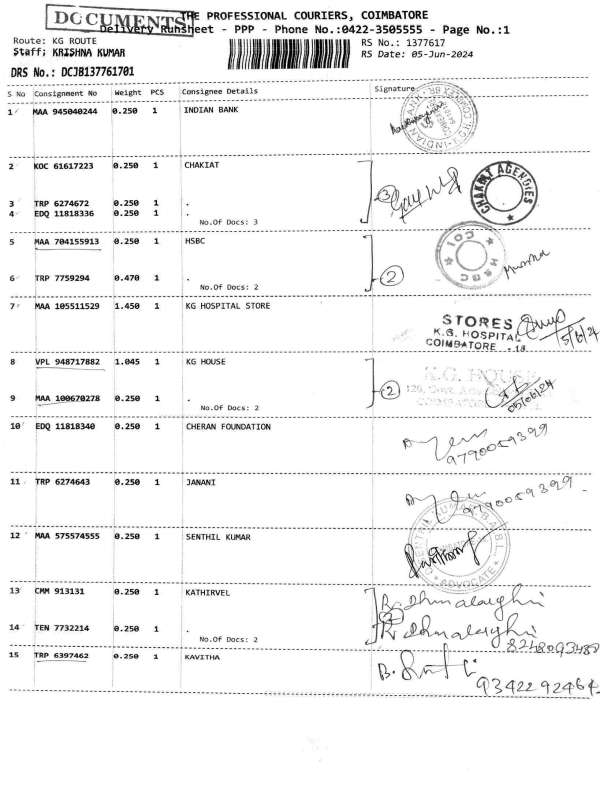 DOCUMENTS
THE PROFESSIONAL COURIERS, COIMBATORE
Delivery Runsheet - PPP - Phone No.:0422-3505555 - Page No.:1
Route: KG ROUTE
RS No.: 1377617
Staff: KRISHNA KUMAR
RS Date: 05-Jun-2024
DRS No.: DCJB137761701
S No Consignment No Weight PCS Consignee Details Signature
1 MAA 945040244 0.250 1 INDIAN BANK
2 KOC 61617223 0.250 1 CHAKIAT
3 TRP 6274672 0.250 1 .
4 EDQ 11818336 0.250 1 .
No.Of Docs: 3
3
CHAKIAT AGENCIES
5 MAA 704155913 0.250 1 HSBC
6 TRP 7759294 0.470 1 .
No.Of Docs: 2
2
HSBC
7 MAA 105511529 1.450 1 KG HOSPITAL STORE
STORES
K.G. HOSPITAL
COIMBATORE - 18
5/6/24
8 VPL 948717882 1.045 1 KG HOUSE
9 MAA 100670278 0.250 1 .
No.Of Docs: 2
2
K.G. HOUSE
05/06/24
10 EDQ 11818340 0.250 1 CHERAN FOUNDATION
9790059399
11 TRP 6274643 0.250 1 JANANI
9790059399
12 MAA 575574555 0.250 1 SENTHIL KUMAR
ADVOCATE
13 CMM 913131 0.250 1 KATHIRVEL
14 TEN 7732214 0.250 1 .
No.Of Docs: 2
2
15 TRP 6397462 0.250 1 KAVITHA
9342292464